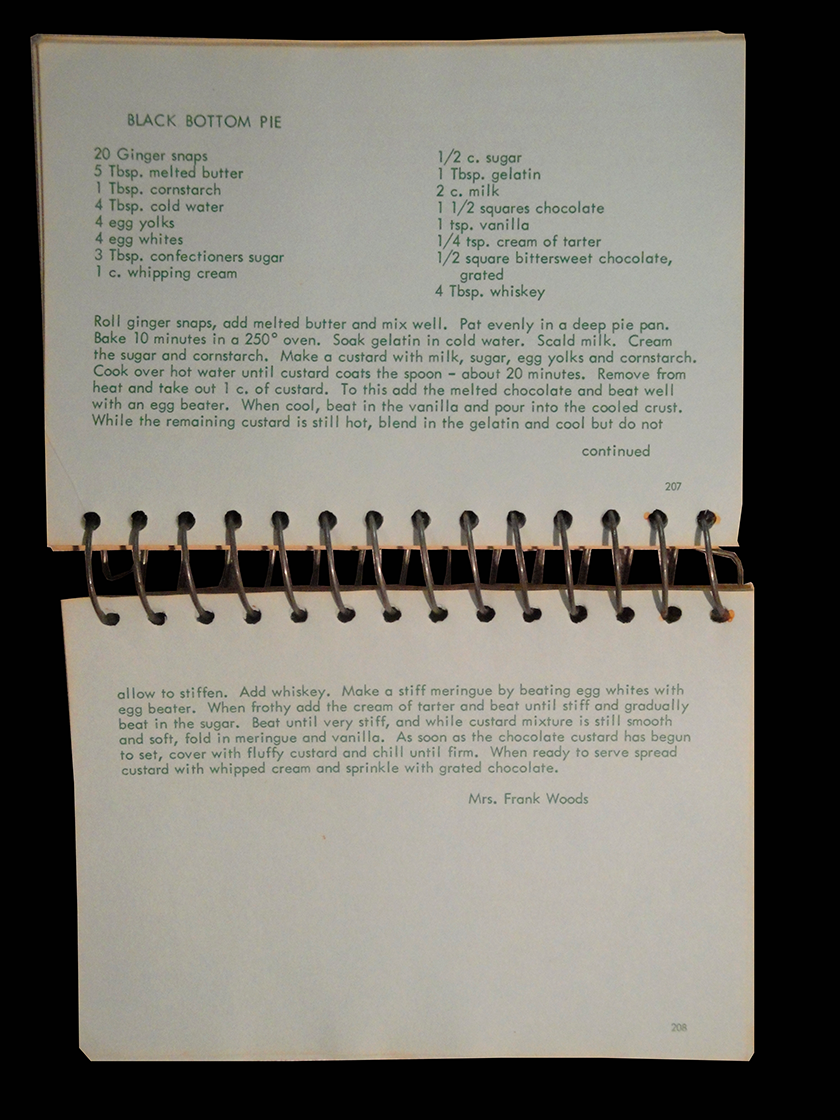 BLACK BOTTOM PIE
20 Ginger snaps
5 Tbsp. melted butter
1 Tbsp. cornstarch
4 Tbsp. cold water
4 egg yolks
4 egg whites
3 Tbsp. confectioners sugar
1 c. whipping cream
1/2 c. sugar
1 Tbsp. gelatin
2 c. milk
1 1/2 squares chocolate
1 tsp. vanilla
1/4 tsp. cream of tarter
1/2 square bittersweet chocolate,
grated
4 Tbsp. whiskey
Roll ginger snaps, add melted butter and mix well. Pat evenly in a deep pie pan.
Bake 10 minutes in a 250° oven. Soak gelatin in cold water. Scald milk. Cream
the sugar and cornstarch. Make a custard with milk, sugar, egg yolks and cornstarch.
Cook over hot water until custard coats the spoon - about 20 minutes. Remove from
heat and take out 1 c. of custard. To this add the melted chocolate and beat well
with an egg beater. When cool, beat in the vanilla and pour into the cooled crust.
While the remaining custard is still hot, blend in the gelatin and cool but do not
continued
207
allow to stiffen. Add whiskey. Make a stiff meringue by beating egg whites with
egg beater. When frothy add the cream of tarter and beat until stiff and gradually
beat in the sugar. Beat until very stiff, and while custard mixture is still smooth
and soft, fold in meringue and vanilla. As soon as the chocolate custard has begun
to set, cover with fluffy custard and chill until firm. When ready to serve spread
custard with whipped cream and sprinkle with grated chocolate.
Mrs. Frank Woods
208